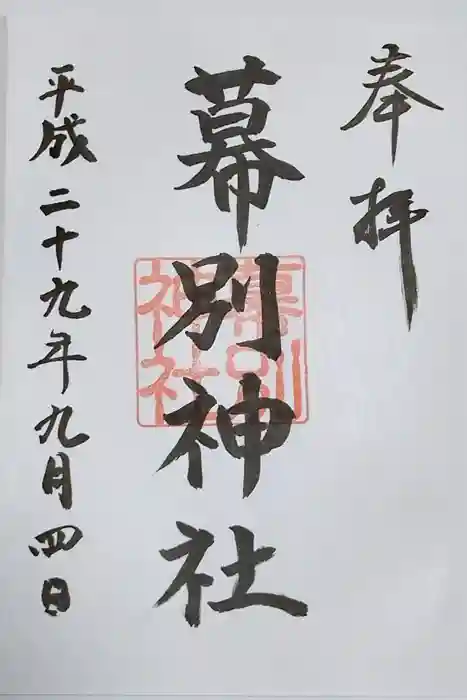 奉拝
幕別神社
幕別
神社
平成二十九年九月四日